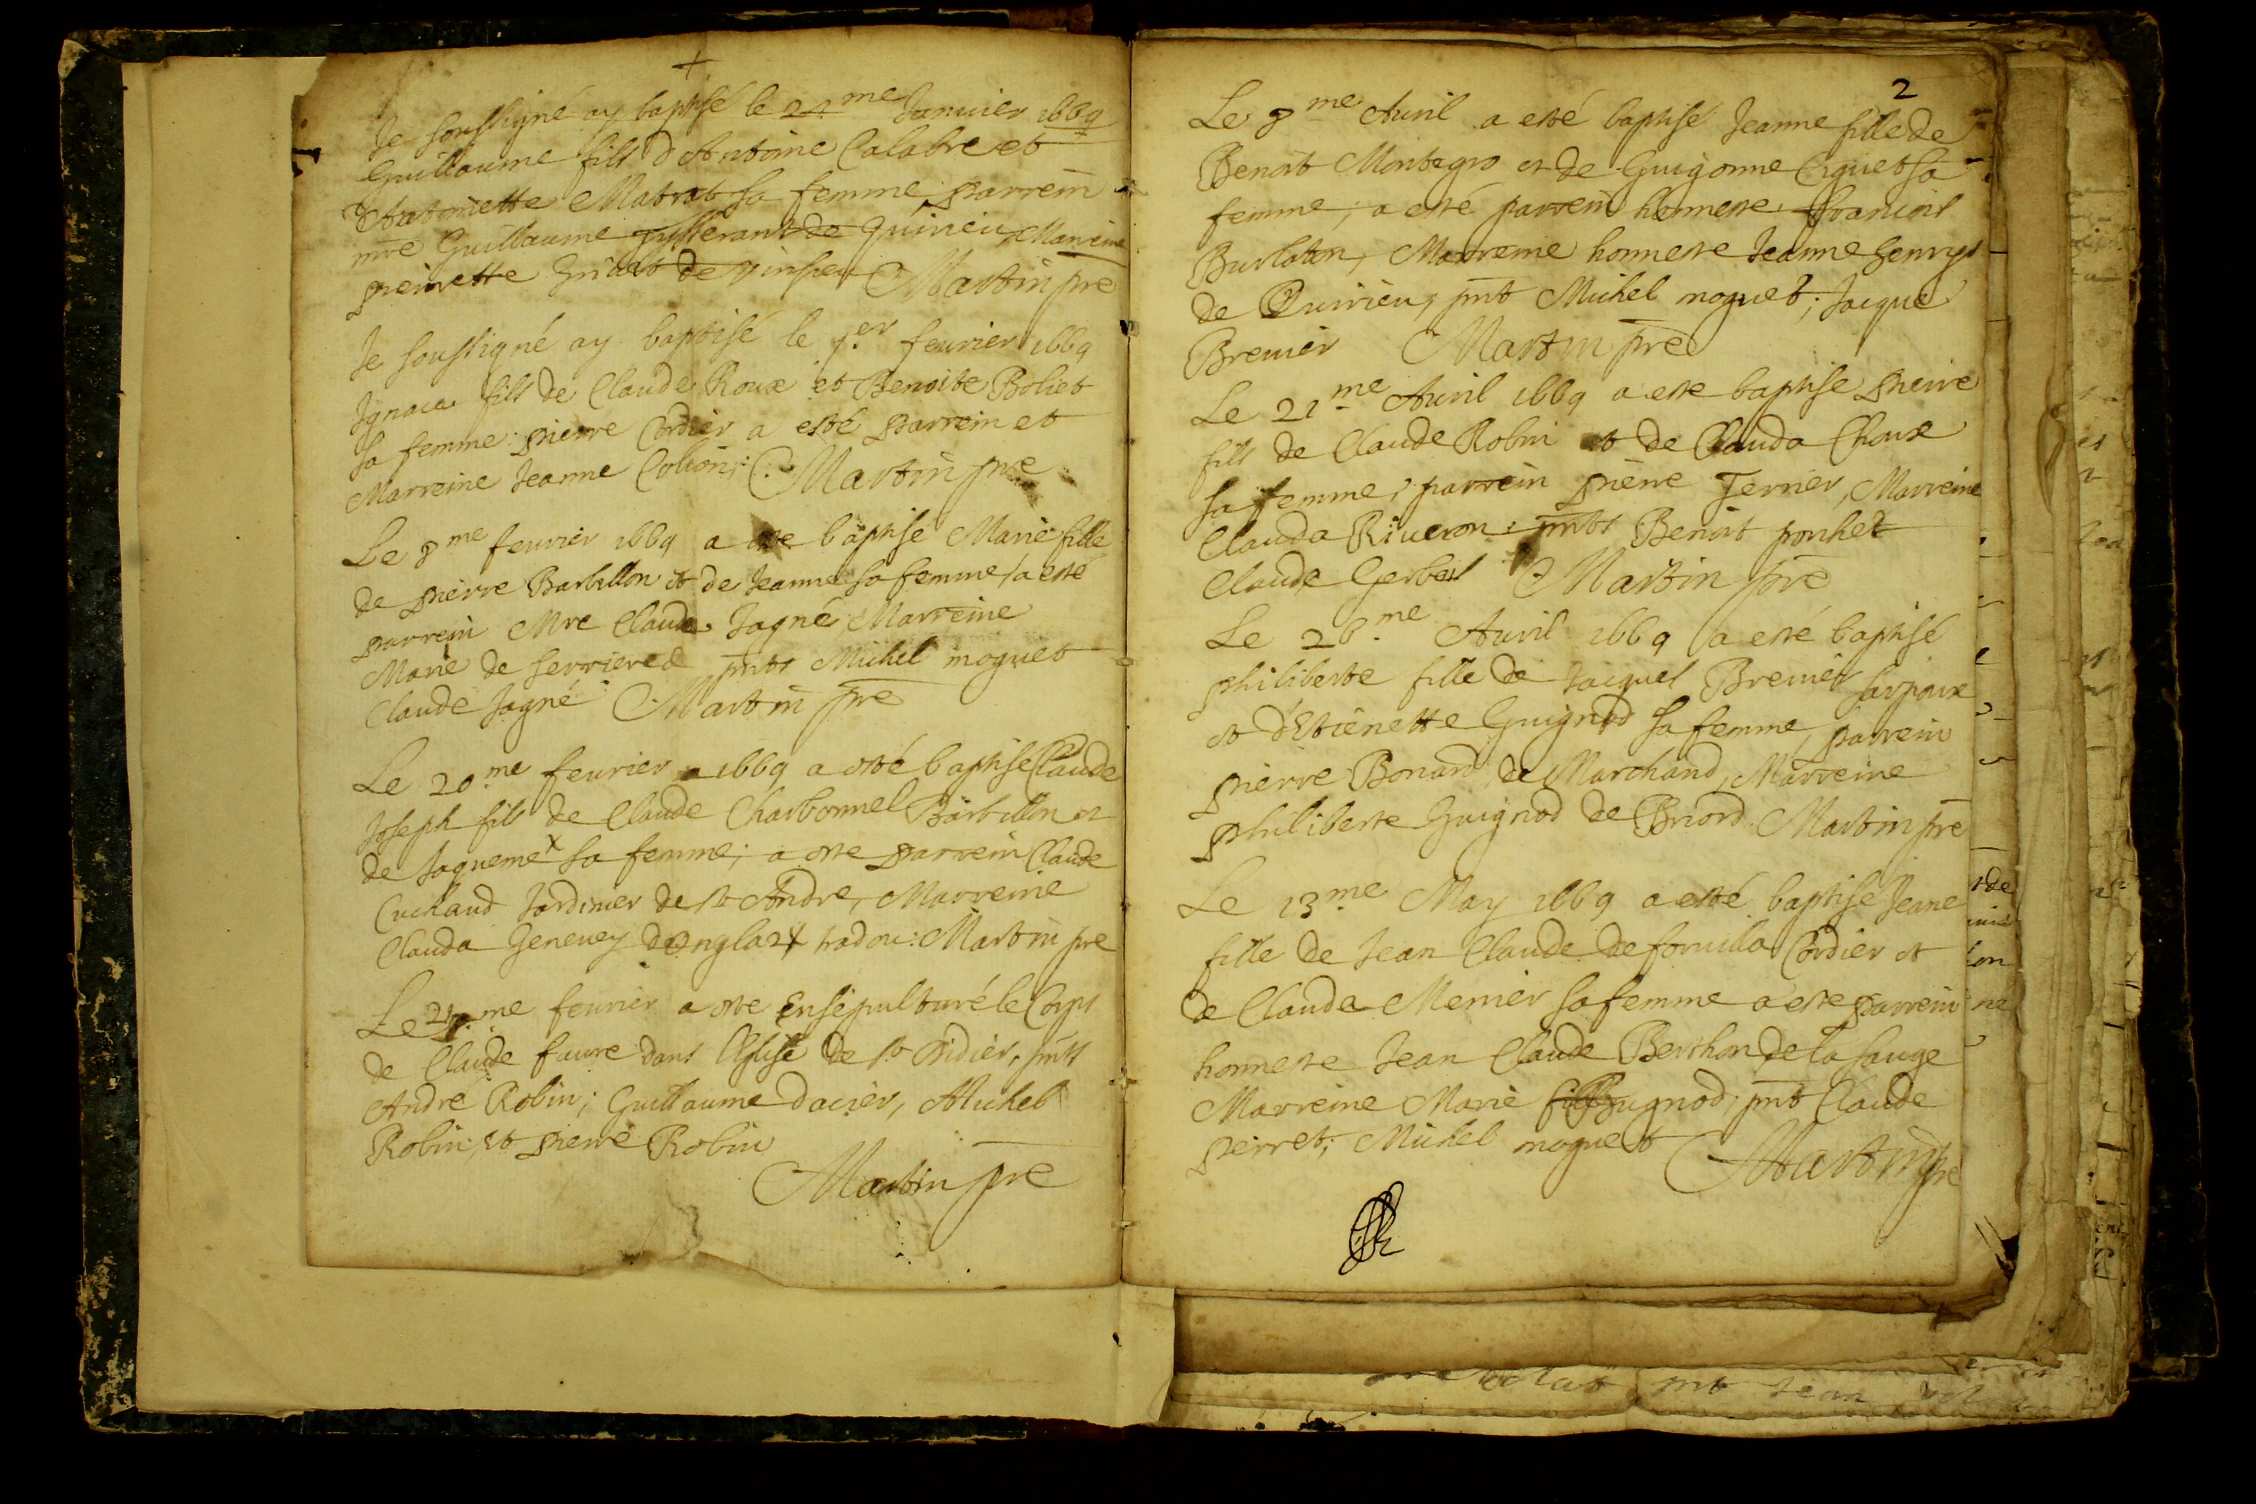 +
Je soussigné ay baptisé le 24.me Januier 1669
Guillaume fils d'Antoine Calabre et
d'Antoinette Matrat sa femme parrein
mre Guillaume de Quirieu, Marreine
pierrette Martin pre
Je soussigné ay baptisé le feurier 1669
Ignace fils de Claude Roux et Benoite Boliet
sa femme: pierre Cordier a esté parrein et
Marreine Jeanne Martin pre
Le 8me feurier 1669 a este baptisé Marie fille
de pierre Barbillon et de Jeanne sa femme, a esté
parrein Mre Claude Jagné Marreine
Marie de pnts Michel moguet
Claude Jagné Martin pre
Le 20.me feurier 1669 a esté baptise Claude
Joseph fils de Claude Charbonnel Barbillon et
de Jaqueme x sa femme; a este parrein Claude
Cuchaud Jardinier de st André, Marreine
Clauda Geneuey Martin pre
Le feurier a este Ensepulturé le Corps
de Claude faure dans l'Eglise de st Didier, pnts
André Robin; Guillaume dacier, Michel
Robin, et pierre Robin
Martin pre
2
Le 8me Auril a esté baptisé Jeanne fille de
Benoit Montegro et de Guigonne Ciquet sa
femme; a esté parrein honneste francois
Burlaton, Marreine honneste Jeanne henrys
de Quirieu, pnt Michel moguet; Jacque
Brenier Martin pre
Le 21.me Auril 1669 a este baptise pierre
fils de Claude Robin et de Clauda Choux
sa femme, parrein pierre Ternier, Marreine
Clauda Riueron, pnts Benoit ponhet
Claude Gerbes Martin pre
Le 26.me Auril 1669 a esté baptisé
philiberte fille de Jacques Brenier
et d'Etienette Guignod sa femme, parrein
pierre Bonard de Marchand, Marreine
philiberte Guignod de Briord Martin pre
Le 13.me May 1669 a esté baptise Jeane
fille de Jean Claude de foruilla Cordier et
de Clauda Menier sa femme a este parrein
honneste Jean Claude Berthon de la sauge
Marreine Marie Bugnod, pnt Claude
perret; Michel moguet Martin pre